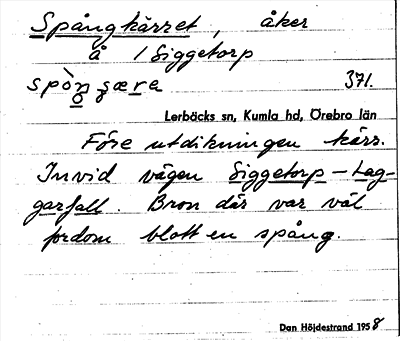 Spångkärret, åker
å 1 Siggetorp
spòŋʂæra 371.
Lerbäcks sn, Kumla hd, Örebro län
Före utdikningen kärr.
Invid vägen Siggetorp - Lag-
garfall. Bron där var väl
fordom blott en spång.
Dan Höjdestrand 1958